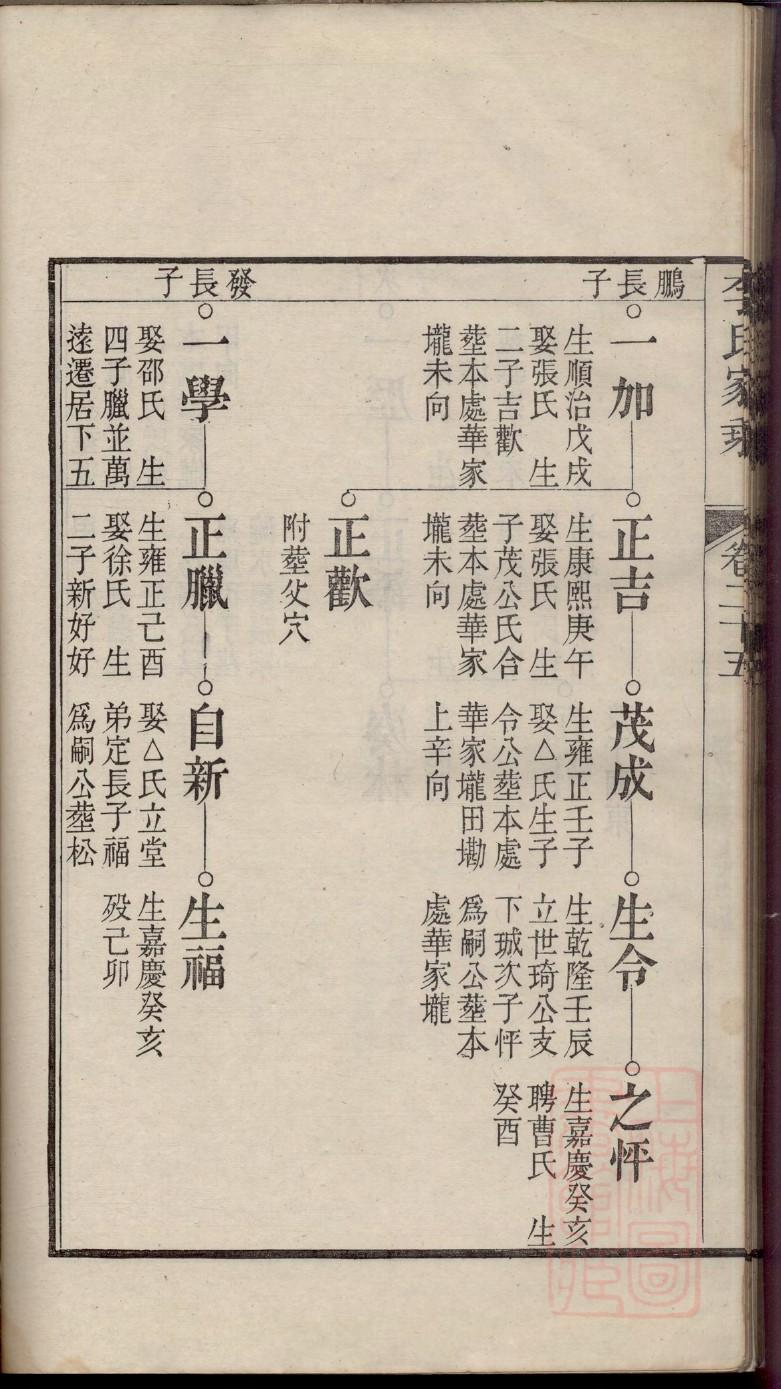 李氏家乘
卷二十五
鵬長子
一加
生順治戊戌
娶張氏 生
二子吉歡
塟本處華家
壠未向
正吉
生康熙庚午
娶張氏 生
子茂公氏合
塟本處華家
壠未向
茂成
生雍正壬子
娶△氏生子
令公塟本處
華家壠田塝
上辛向
生令
生乾隆壬辰
立世琦公支
下珹次子怦
爲嗣公塟本
處華家壠
之怦
生嘉慶癸亥
聘曹氏 生
癸酉
正歡
附塟父穴
發長子
一學
娶邵氏 生
四子臘並萬
遠遷居下五
正臘
生雍正己酉
娶徐氏 生
二子新好好
自新
娶△氏立堂
弟定長子福
爲嗣公塟松
生福
生嘉慶癸亥
歿己卯